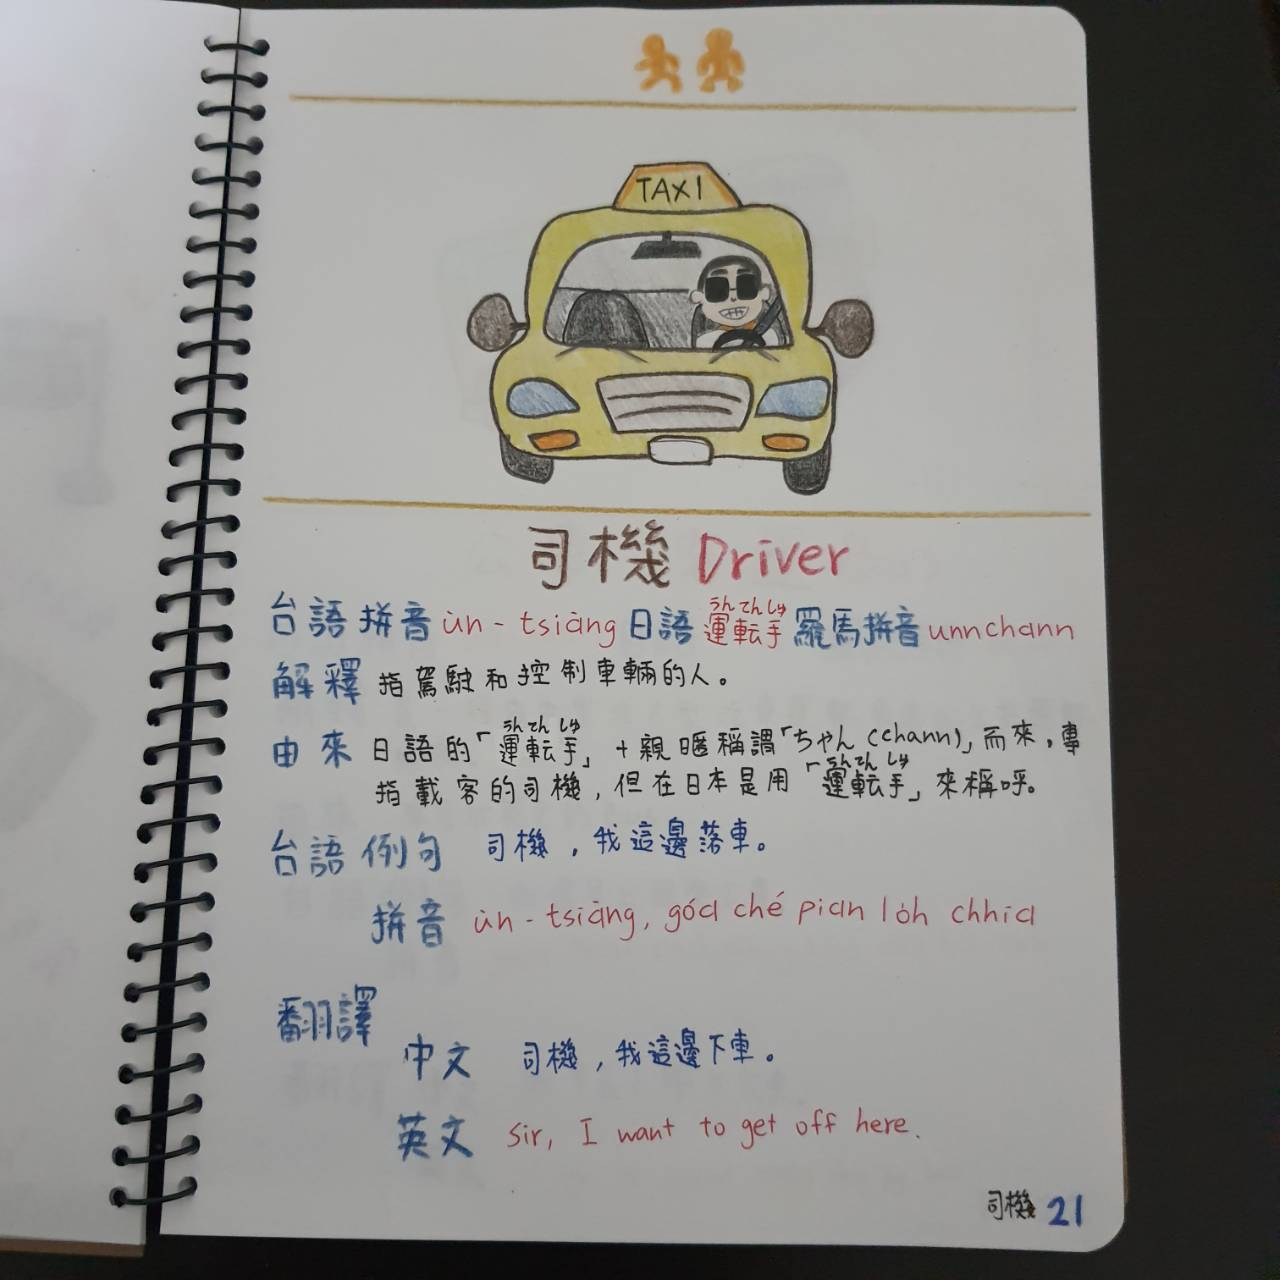 TAXI
司機 Driver
台語拼音 ùn-tsiàng 日語 運転手 うんてんしゅ 羅馬拼音 unnchann
解釋 指駕駛和控制車輛的人。
由來 日語的「運転手 うんてんしゅ」+親暱稱謂「ちゃん(chann)」而來,專
指載客的司機,但在日本是用「運転手 うんてんしゅ」來稱呼。
台語例句 司機,我這邊落車。
拼音 ùn-tsiàng, góa ché pian lo̍h chhia
翻譯
中文 司機,我這邊下車。
英文 Sir, I want to get off here.
司機 21